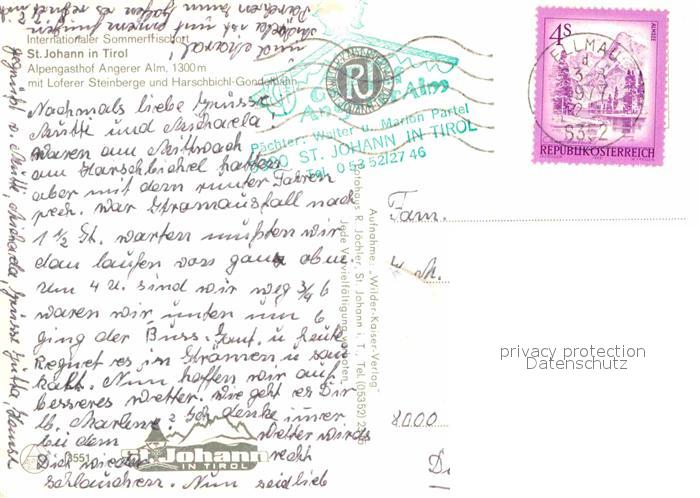 Internationaler Sommerfrischort
St. Johann in Tirol
Alpengasthof Angerer Alm, 1300 m
mit Loferer Steinberge und Harschbichl-Gondelbahn
Nochmals liebe Grüsse,
Mutti und Michaela,
waren am Mittwoch
am Harschbichel hatten
aber mit dem runter Fahren
pech. war Stromausfall nach
1 1/2 St. warten mußten wir
dan laufen von ganz oben.
um 4 u. sind wir weg 3/4 6
waren wir unten um 6
ging der Buss. u heute
Regnet es in Strömen u sau
kalt. Nun hoffen wir auf
besseres Wetter. wie geht es Dir
lb. Marlene? Ich denke immer
bei dem Wetter wirds
Dich wieder recht
schlauchen. Nun seid lieb
gegrüßt v. Mutti, Michaela, Grüsse
und Michaela
Pächter: Walter u. Marion Partel
6380 ST. JOHANN IN TIROL
Tel. 0 53 52/27 46
RJ
4S
ALMSEE
REPUBLIK ÖSTERREICH
ELLMAU
1977
6352
Aufnahme: „Wilder-Kaiser-Verlag"
Fotohaus R. Jöchler, St. Johann i. T., Tel. (05352)
Jede Vervielfältigung verboten
Fam.
8000
privacy protection
Datenschutz
3551
St. Johann
IN TIROL